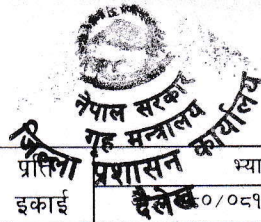 नेपाल सरकार
गृह मन्त्रालय
जिल्ला प्रशासन कार्यालय
दैलेख
प्रति
इकाई
भ्या
०/०८१